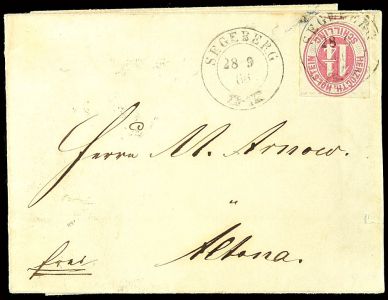 SEGEBERG
28 9
66
SEGEBERG
28
HERZOGTH. HOLSTEIN
SCHILLING
1¼
Herrn M. Arnow.
Altona.
frei